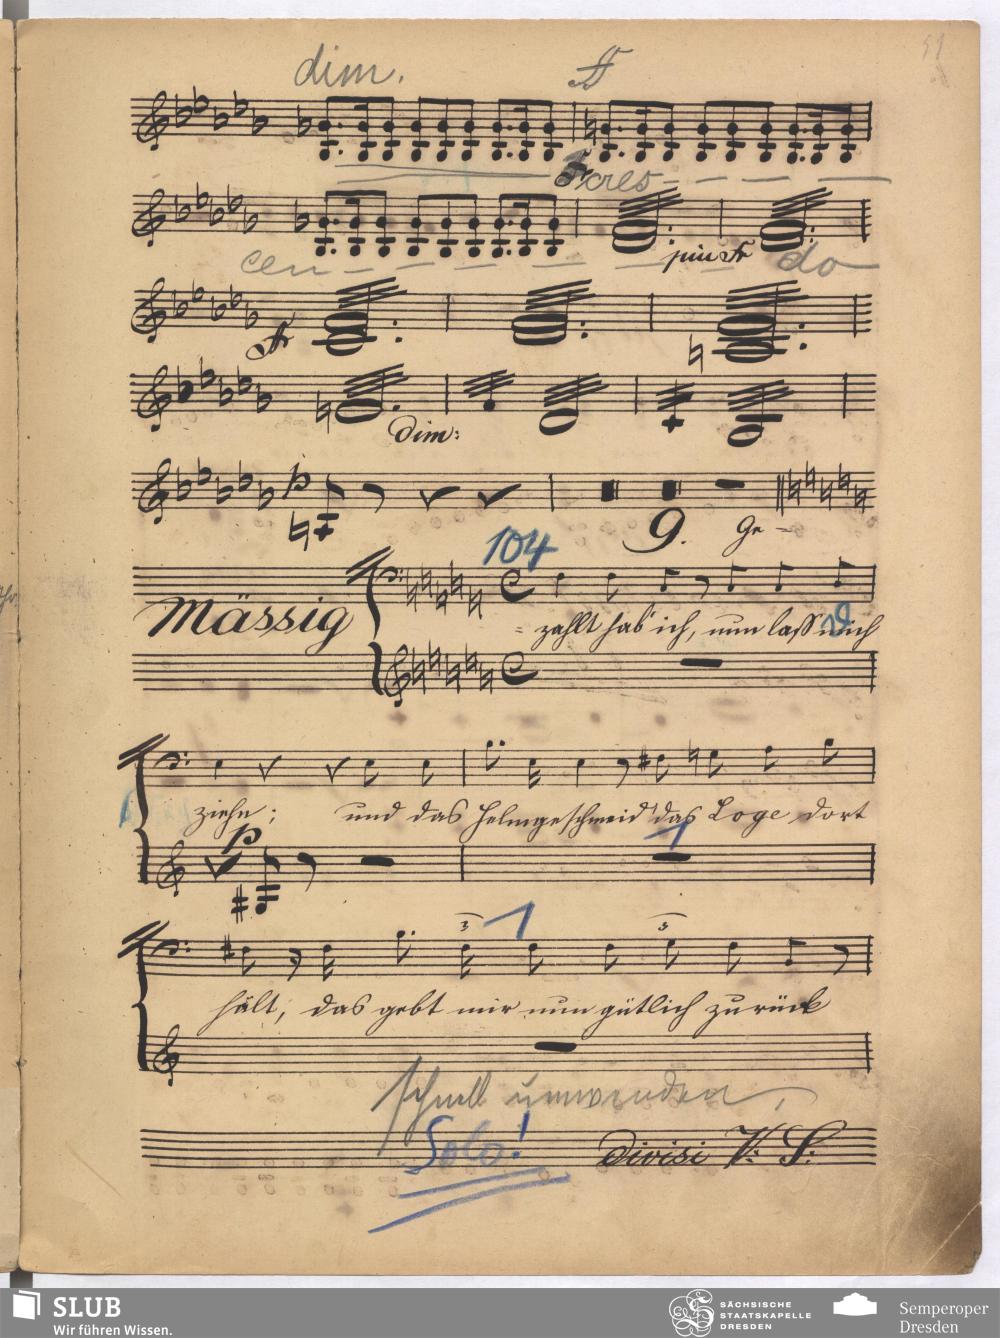 51
dim. ff
cres - - - -
cen - - - - - più f - do
ff
dim:
p
9. Ge-
104
Mässig
- zahlt hab' ich, nun lasst mich
ziehn; und das Helmgeschmeid' das Loge dort
p 1
3 1 3
hält, das gebt mir nun gütlich zurück
schnell umwenden,
Solo! divisi V: S:
SLUB
Wir führen Wissen.
SÄCHSISCHE
STAATSKAPELLE
DRESDEN
Semperoper
Dresden